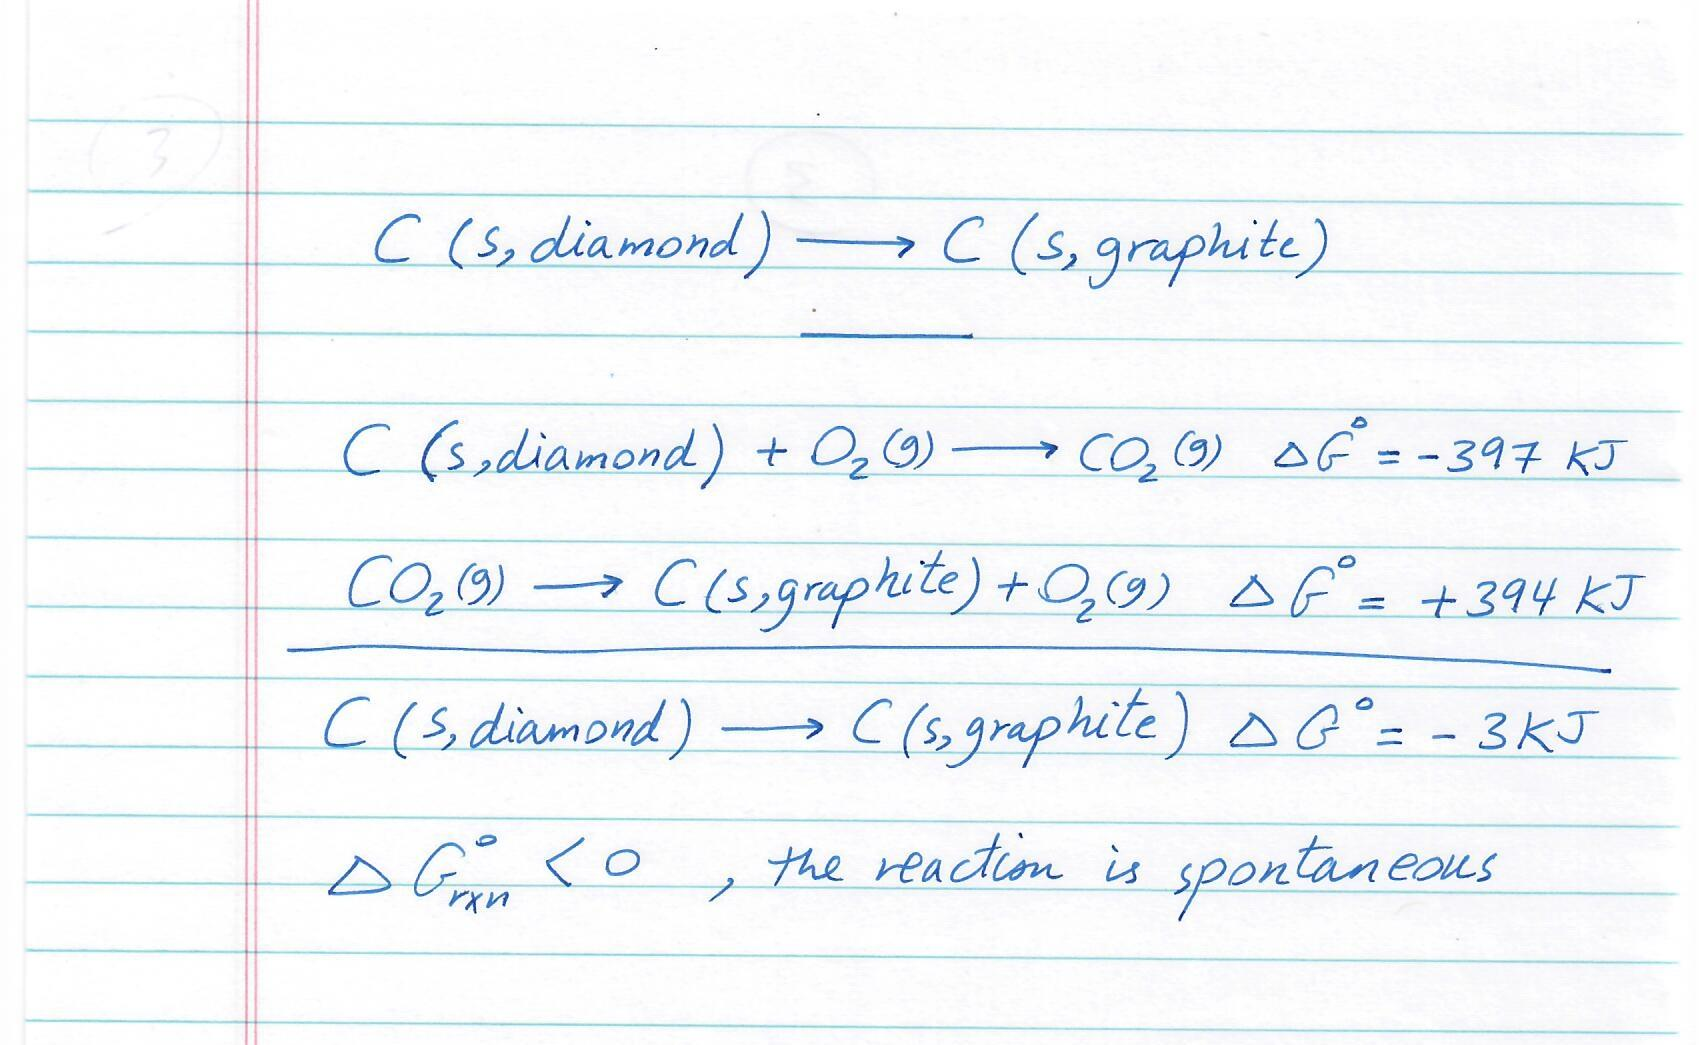 C (s, diamond) ⟶ C (s, graphite)
C (s, diamond) + O₂(g) ⟶ CO₂(g) ΔG° = -397 KJ
CO₂(g) ⟶ C(s, graphite) + O₂(g) ΔG° = +394 KJ
C (s, diamond) ⟶ C(s, graphite) ΔG° = -3KJ
ΔG°rxn < 0 , the reaction is spontaneous